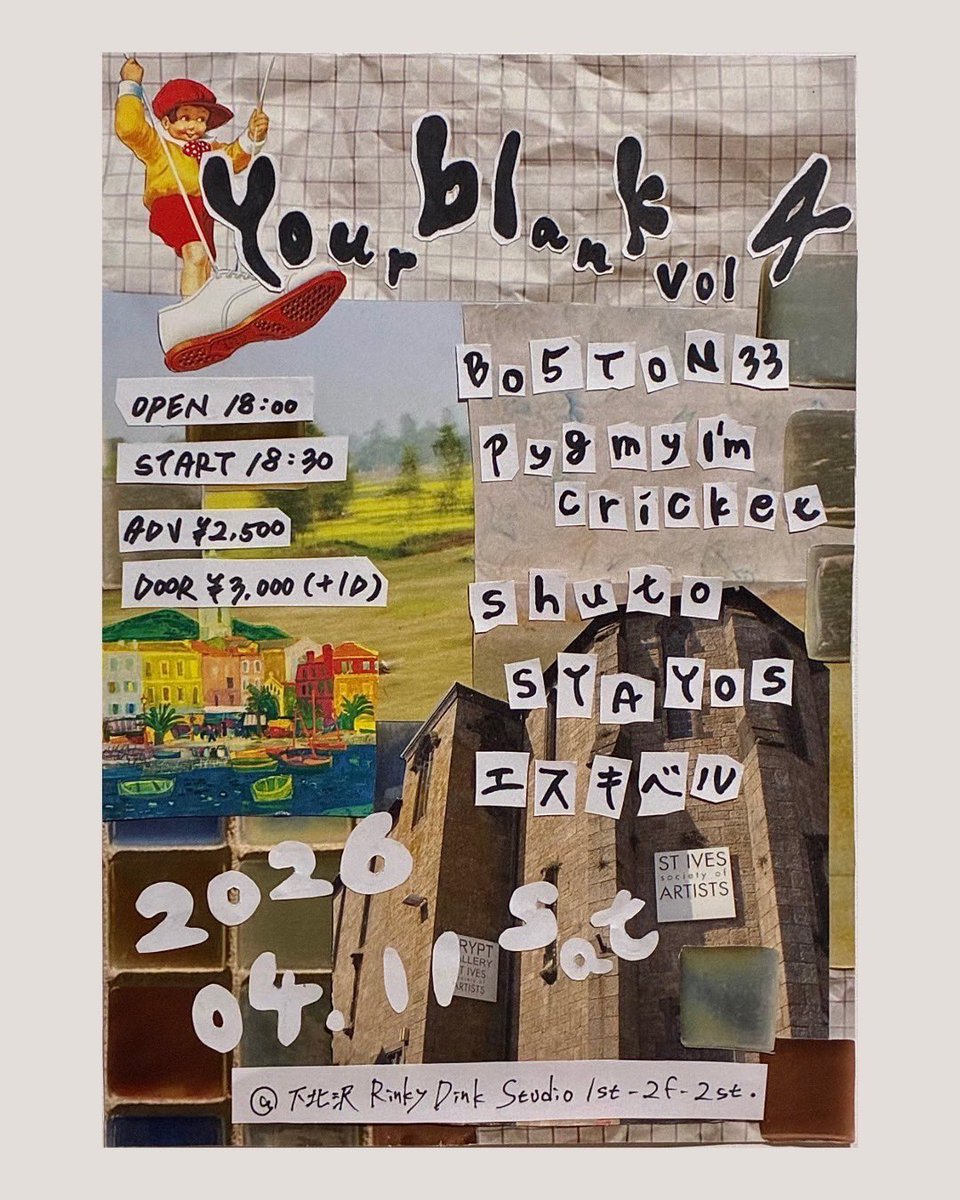 Your blank vol 4
OPEN 18:00
START 18:30
ADV ¥2,500
DOOR ¥3,000 (+1D)
BO5TON33
Pygmy I'm
cricket
shuto
STAYOS
エスキベル
2026
04.11 Sat
ST IVES
society of
ARTISTS
RYPT
LLERY
T IVES
ARTISTS
@下北沢 Rinky Dink Studio 1st-2f-2st.